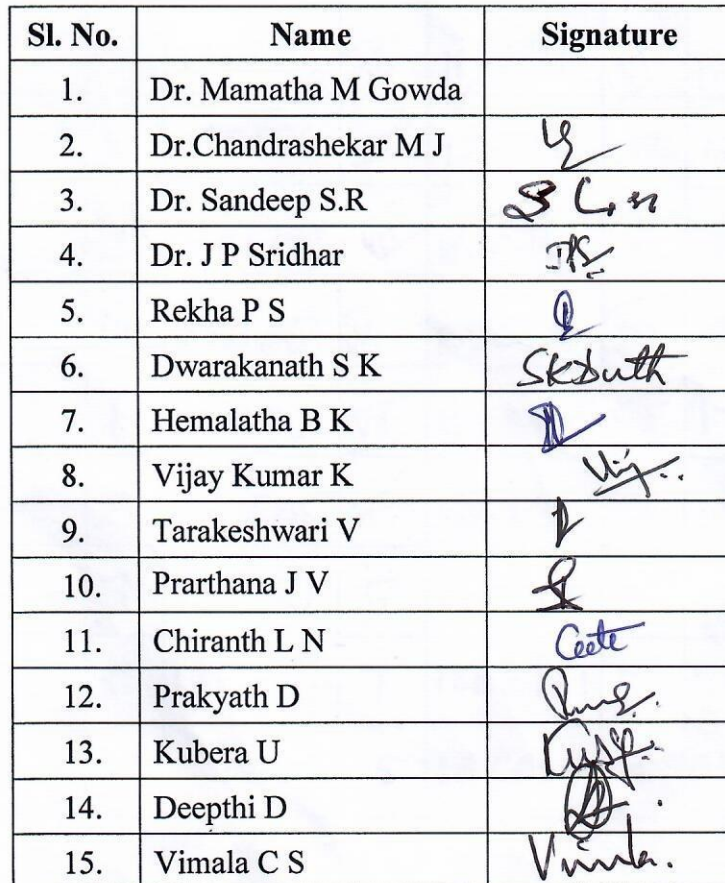 Sl. No. Name Signature
1. Dr. Mamatha M Gowda
2. Dr.Chandrashekar M J
3. Dr. Sandeep S.R
4. Dr. J P Sridhar JPS
5. Rekha P S
6. Dwarakanath S K
7. Hemalatha B K
8. Vijay Kumar K
9. Tarakeshwari V
10. Prarthana J V
11. Chiranth L N
12. Prakyath D
13. Kubera U
14. Deepthi D
15. Vimala C S Vimala.